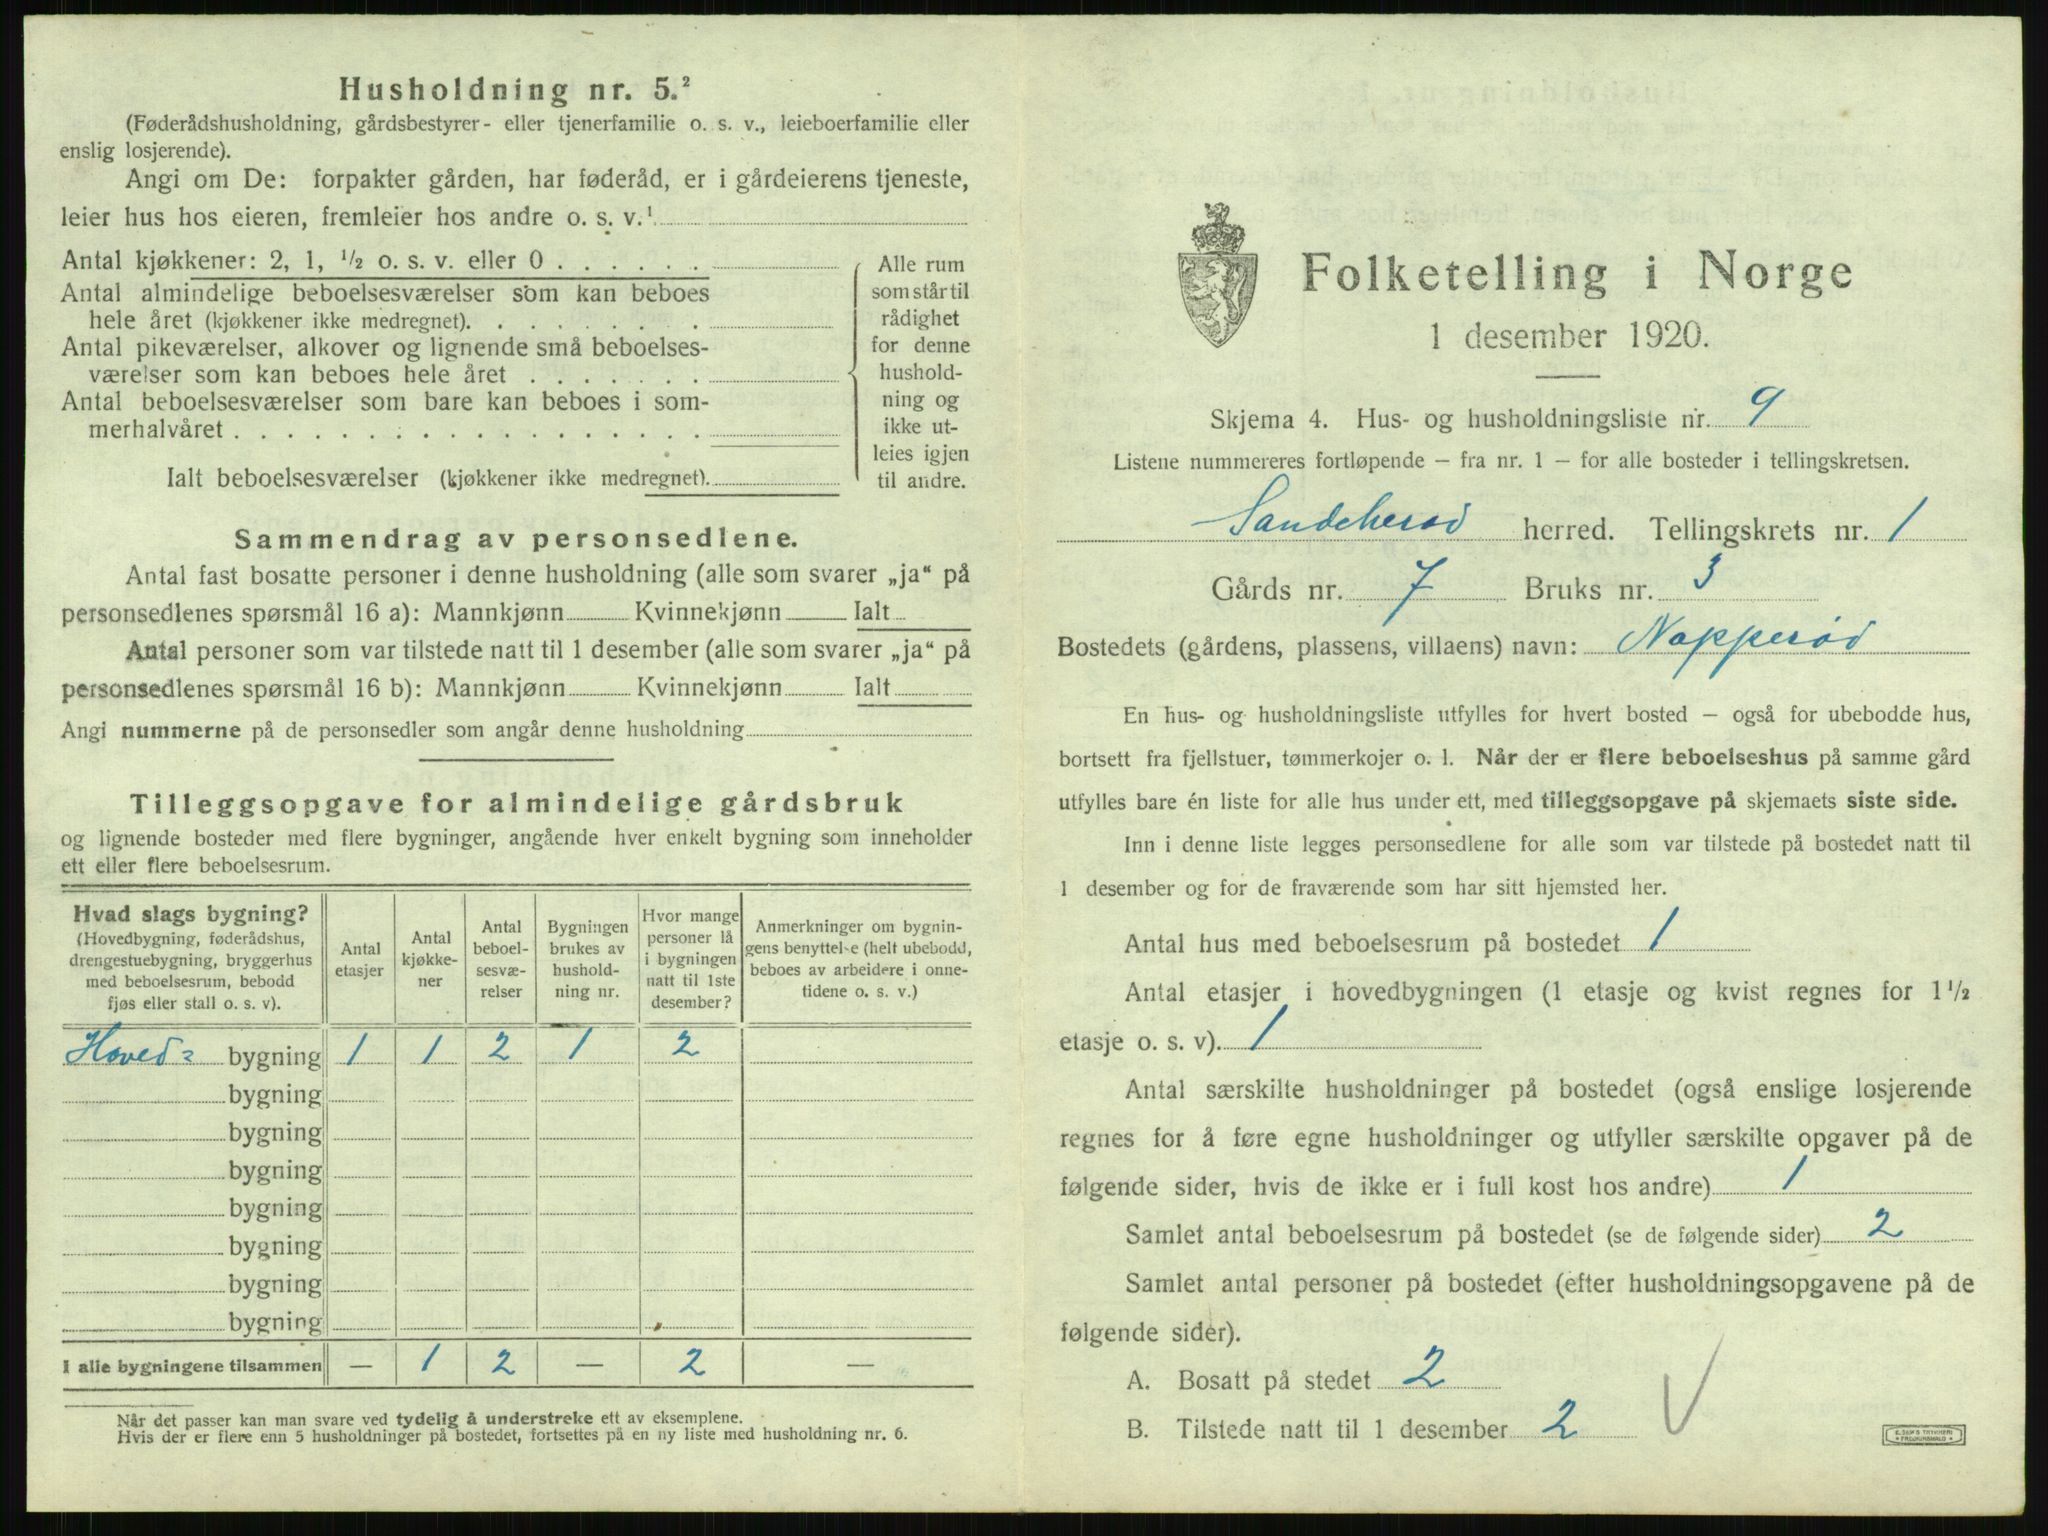 Husholdning nr. 5.²
(Føderådshusholdning, gårdsbestyrer- eller tjenerfamilie o. s. v., leieboerfamilie eller
enslig losjerende).
Angi om De: forpakter gården, har føderåd, er i gårdeierens tjeneste,
leier hus hos eieren, fremleier hos andre o. s. v.¹
Antal kjøkkener: 2, 1, ½ o. s. v. eller 0
Antal almindelige beboelsesværelser som kan beboes
hele året (kjøkkener ikke medregnet).
Antal pikeværelser, alkover og lignende små beboelses-
værelser som kan beboes hele året
Antal beboelsesværelser som bare kan beboes i som-
merhalvåret
Ialt beboelsesværelser (kjøkkener ikke medregnet).
Alle rum
som står til
rådighet
for denne
hushold-
ning og
ikke ut-
leies igjen
til andre.
Sammendrag av personsedlene.
Antal fast bosatte personer i denne husholdning (alle som svarer „ja“ på
personsedlenes spørsmål 16 a): Mannkjønn Kvinnekjønn Ialt
Antal personer som var tilstede natt til 1 desember (alle som svarer „ja“ på
personsedlenes spørsmål 16 b): Mannkjønn Kvinnekjønn Ialt
Angi nummerne på de personsedler som angår denne husholdning
Tilleggsopgave for almindelige gårdsbruk
og lignende bosteder med flere bygninger, angående hver enkelt bygning som inneholder
ett eller flere beboelsesrum.
Hvad slags bygning?
(Hovedbygning, føderådshus,
drengestuebygning, bryggerhus
med beboelsesrum, bebodd
fjøs eller stall o. s. v).
Antal
etasjer
Antal
kjøkke-
ner
Antal
beboel-
sesvæ-
relser
Bygningen
brukes av
hushold-
ning nr.
Hvor mange
personer lå
i bygningen
natt til 1ste
desember?
Anmerkninger om bygnin-
gens benyttelse (helt ubebodd,
beboes av arbeidere i onne-
tidene o. s. v.)
Hoved= bygning 1 1 2 1 2
bygning
bygning
bygning
bygning
bygning
bygning
bygning
I alle bygningene tilsammen — 1 2 — 2 —
Når det passer kan man svare ved tydelig å understreke ett av eksemplene.
Hvis der er flere enn 5 husholdninger på bostedet, fortsettes på en ny liste med husholdning nr. 6.
Folketelling i Norge
1 desember 1920.
Skjema 4. Hus- og husholdningsliste nr. 9
Listene nummereres fortløpende — fra nr. 1 — for alle bosteder i tellingskretsen.
Sandeherad herred. Tellingskrets nr. 1
Gårds nr. 7 Bruks nr. 3
Bostedets (gårdens, plassens, villaens) navn: Napperød
En hus- og husholdningsliste utfylles for hvert bosted — også for ubebodde hus,
bortsett fra fjellstuer, tømmerkojer o. l. Når der er flere beboelseshus på samme gård
utfylles bare én liste for alle hus under ett, med tilleggsopgave på skjemaets siste side.
Inn i denne liste legges personsedlene for alle som var tilstede på bostedet natt til
1 desember og for de fraværende som har sitt hjemsted her.
Antal hus med beboelsesrum på bostedet 1
Antal etasjer i hovedbygningen (1 etasje og kvist regnes for 1½
etasje o. s. v). 1
Antal særskilte husholdninger på bostedet (også enslige losjerende
regnes for å føre egne husholdninger og utfyller særskilte opgaver på de
følgende sider, hvis de ikke er i full kost hos andre) 1
Samlet antal beboelsesrum på bostedet (se de følgende sider) 2
Samlet antal personer på bostedet (efter husholdningsopgavene på de
følgende sider).
A. Bosatt på stedet 2
B. Tilstede natt til 1 desember 2